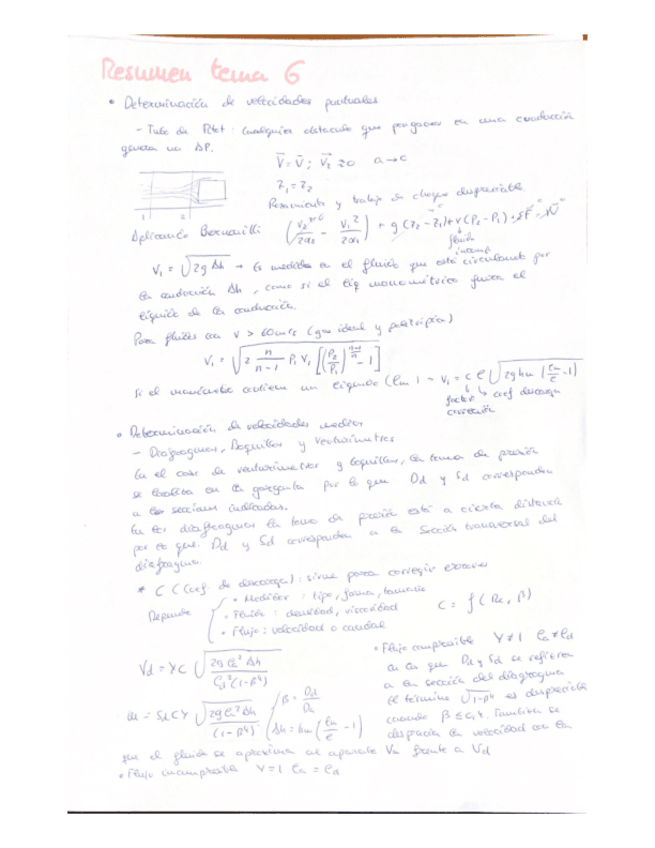 Resumen tema 6
• Determinación de velocidades puntuales
- Tubo de Pitot : Cualquier obstaculo que pongamos en una conducción
genera un ΔP.
V = V ; V₂ ≃ 0 a → c
Z₁ = Z₂
Rozamiento y trabajo de choque despreciable
1 2
Aplicando Bernouilli (V₂²/2α₂ - V₁²/2α₁) + g (Z₂ - Z₁) + v (P₂ - P₁) + ΣF = W
fluido
incomp
V₁ = √2g Δh → Es medida en el fluido que está circulando por
la conducción Δh, como si el liq manométrico fuera el
líquido de la conducción.
Para fluidos con v > 60 m/s (gas ideal y politrópia)
V₁ = √2 n/n-1 P₁ V₁ [(P₂/P₁)^(n-1/n) - 1]
Si el manómetro contiene un líquido (ρm) → V₁ = c ρ √2g hm (ρm/ρ - 1)
factor coef descarga
corrección
• Determinación de velocidades medias
- Diafragmas, Boquillas y Venturímetros
En el caso de venturímetros y boquillas, la toma de presión
se localiza en la garganta por lo que Dd y Sd corresponden
a las secciones indicadas.
En los diafragmas la toma de presión está a cierta distancia
por lo que Dd y Sd corresponden a la sección transversal del
diafragma.
* C (coef de descarga) : sirve para corregir errores
Depende
• Medidor : tipo, forma, tamaño
• Fluido : densidad, viscosidad
• Flujo : velocidad o caudal
C = f (Re, β)
Vd = YC √2g ρa² Δh / ρd² (1-β⁴)
m = Sd C Y √2g ρa² Δh / (1-β⁴)
β = Dd/Da
Δh = hm (ρm/ρ - 1)
• Flujo compresible Y ≠ 1 ρa ≠ ρd
en la que Dd y Sd se refieren
a la sección del diafragma
El término √1-β⁴ es despreciable
cuando β ≤ 0,4. También se
desprecia la velocidad con la
que el fluido se aproxima al aparato Va frente a Vd
• Flujo incompresible Y = 1 ρa = ρd